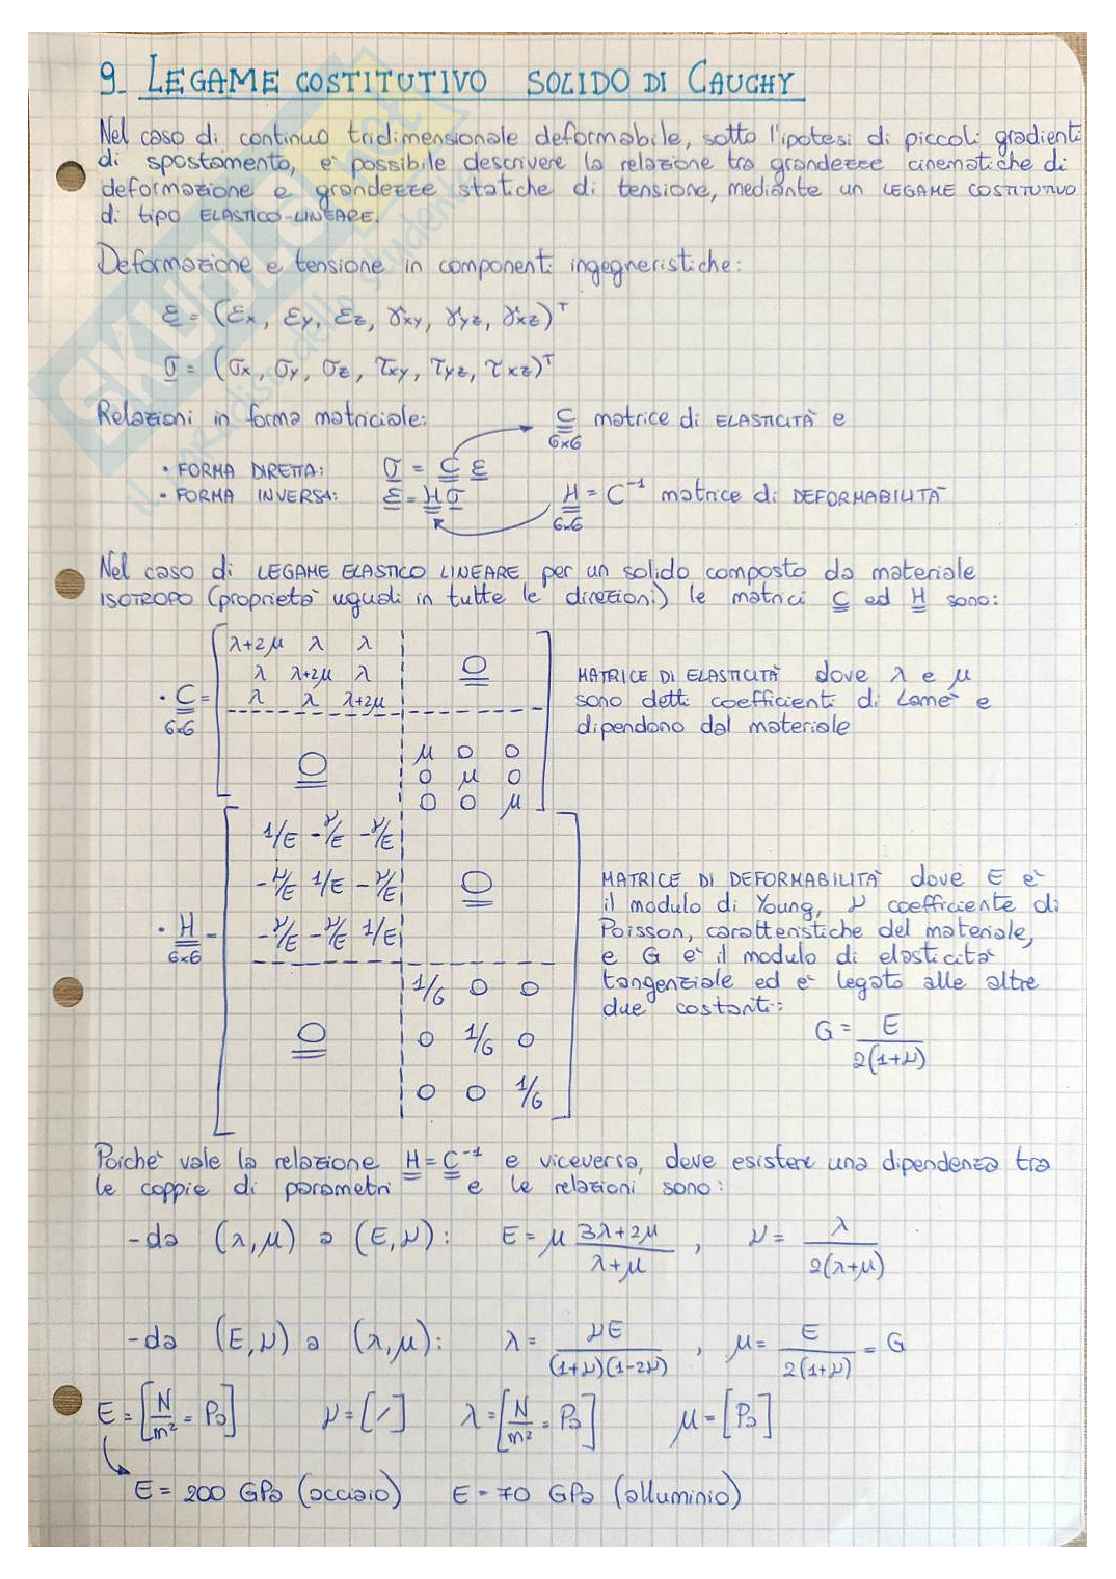 9_ LEGAME COSTITUTIVO SOLIDO DI CAUCHY
Nel caso di continuo tridimensionale deformabile, sotto l'ipotesi di piccoli gradienti
di spostamento, e' possibile descrivere la relazione tra grandezze cinematiche di
deformazione e grandezze statiche di tensione, mediante un LEGAME COSTITUTIVO
di tipo ELASTICO-LINEARE.
Deformazione e tensione in componenti ingegneristiche:
ε = (εx, εy, εz, γxy, γyz, γxz)^T
σ = (σx, σy, σz, τxy, τyz, τxz)^T
Relazioni in forma matriciale:
C matrice di ELASTICITÀ e
6x6
• FORMA DIRETTA: σ = C ε
• FORMA INVERSA: ε = H σ
H = C⁻¹ matrice di DEFORMABILITÀ
6x6
Nel caso di LEGAME ELASTICO LINEARE per un solido composto da materiale
ISOTROPO (proprietà uguali in tutte le direzioni) le matrici C ed H sono:
λ+2μ λ λ
λ λ+2μ λ 0
• C = λ λ λ+2μ
6x6
μ 0 0
0 0 μ 0
0 0 μ
MATRICE DI ELASTICITÀ dove λ e μ
sono detti coefficienti di Lamè e
dipendono dal materiale
1/E -ν/E -ν/E
-ν/E 1/E -ν/E 0
• H = -ν/E -ν/E 1/E
6x6
1/G 0 0
0 0 1/G 0
0 0 1/G
MATRICE DI DEFORMABILITÀ dove E e'
il modulo di Young, ν coefficiente di
Poisson, caratteristiche del materiale,
e G e' il modulo di elasticità
tangenziale ed e' legato alle altre
due costanti:
G = E / 2(1+ν)
Poiche' vale la relazione H = C⁻¹ e viceversa, deve esistere una dipendenza tra
le coppie di parametri e le relazioni sono:
- da (λ, μ) a (E, ν): E = μ (3λ+2μ)/(λ+μ) , ν = λ / 2(λ+μ)
- da (E, ν) a (λ, μ): λ = νE / (1+ν)(1-2ν) , μ = E / 2(1+ν) = G
E = [N/m² = Pa] ν = [/] λ = [N/m² = Pa] μ = [Pa]
E = 200 GPa (acciaio) E = 70 GPa (alluminio)